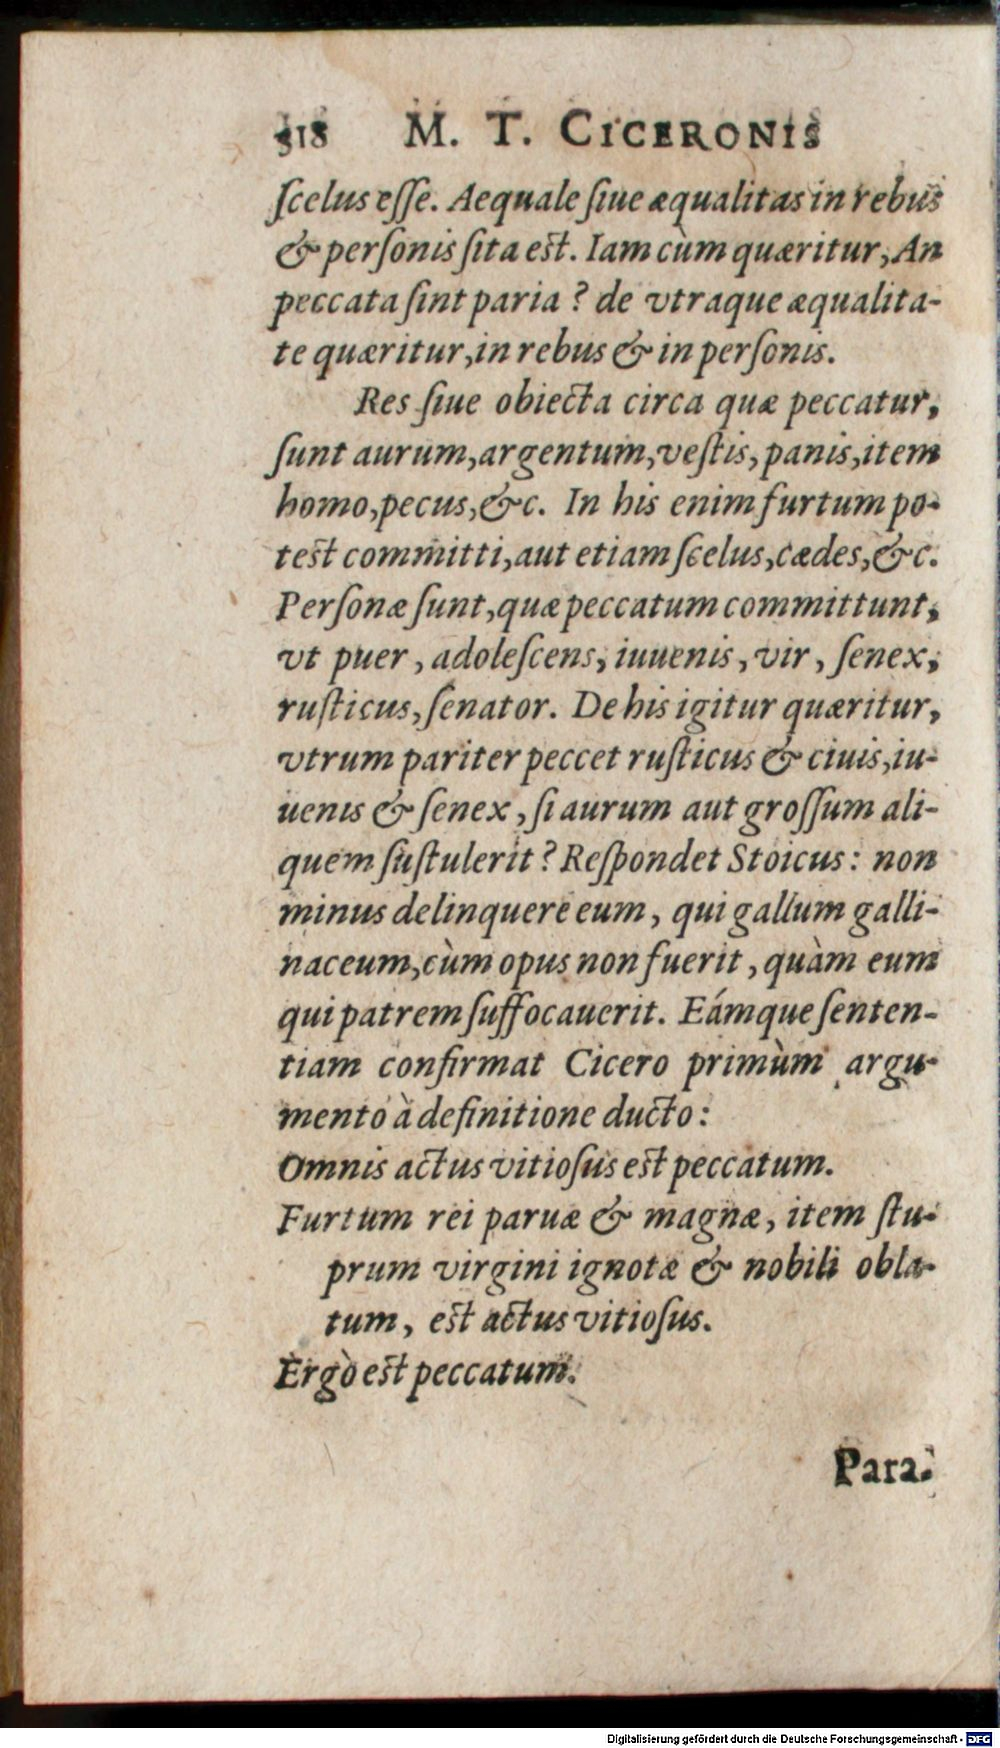 318 M. T. CICERONIS
ſcelus eſſe. Aequale ſiue æqualitas in rebus
& perſonis ſita est. Iam cùm quæritur, An
peccata ſint paria? de vtraque æqualita-
te quæritur, in rebus & in perſonis.
Res ſiue obiecta circa quæ peccatur,
ſunt aurum, argentum, veſtis, panis, item
homo, pecus, &c. In his enim furtum po-
test committi, aut etiam ſcelus, cædes, &c.
Perſonæ ſunt, quæ peccatum committunt,
vt puer, adoleſcens, iuuenis, vir, ſenex,
ruſticus, ſenator. De his igitur quæritur,
vtrum pariter peccet ruſticus & ciuis, iu-
uenis & ſenex, ſi aurum aut groſſum ali-
quem ſuſtulerit? Reſpondet Stoicus: non
minus delinquere eum, qui gallum galli-
naceum, cùm opus non fuerit, quàm eum
qui patrem ſuffocauerit. Eámque ſenten-
tiam confirmat Cicero primùm argu-
mento à definitione ducto:
Omnis actus vitioſus est peccatum.
Furtum rei paruæ & magnæ, item ſtu-
prum virgini ignotæ & nobili obla-
tum, est actus vitioſus.
Ergò est peccatum.
Para-
Digitalisierung gefördert durch die Deutsche Forschungsgemeinschaft - DFG